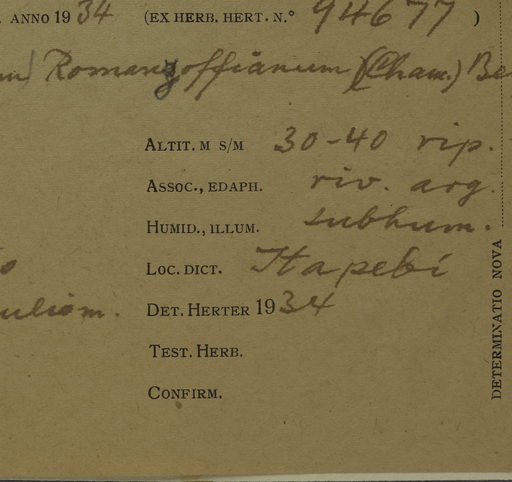 ANNO 1934 (EX HERB. HERT. N.° 94677 )
Romanzoffianum (Cham.) Be
ALTIT. M S/M 30-40 rip.
ASSOC., EDAPH. riv. arg.
HUMID., ILLUM. subhum.
LOC. DICT. Itapebi
DET. HERTER 1934
TEST. HERB.
CONFIRM.
DETERMINATIO NOVA